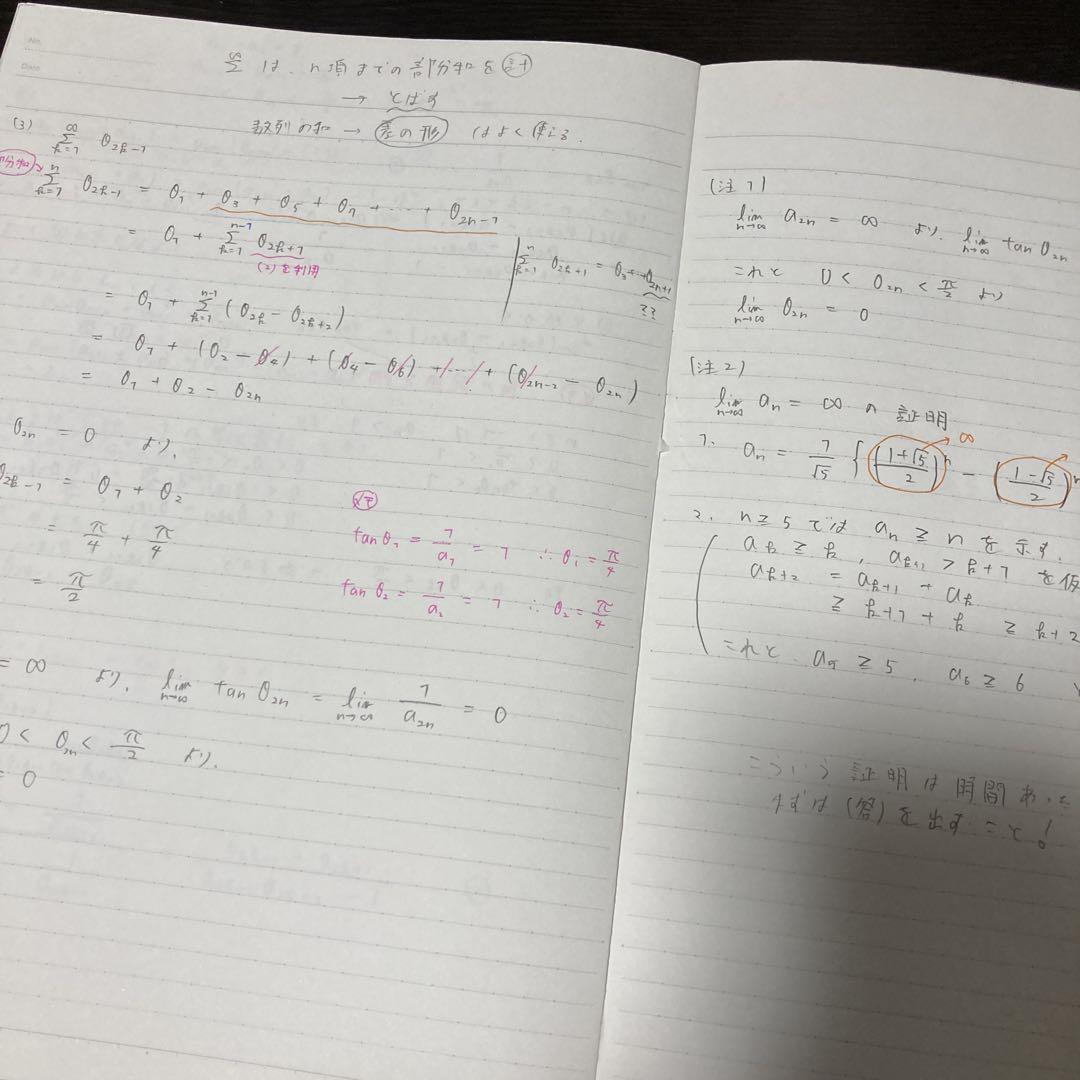 No.
Date
∞Σ は、n項までの部分和を計
→ とばす
数列の和 → 差の形 はよく使える.
(3) ∞Σk=1 θ2k-1
部分和 nΣk=1 θ2k-1 = θ1 + θ3 + θ5 + θ7 + … + θ2n-1
= θ1 + n-1Σk=1 θ2k+1
(2)を利用
nΣk=1 θ2k+1 = θ3+…θ2n+1
??
= θ1 + n-1Σk=1 (θ2k - θ2k+2)
= θ1 + (θ2 - θ4) + (θ4 - θ6) + … + (θ2n-2 - θ2n)
= θ1 + θ2 - θ2n
θ2n = 0 より.
θ2k-1 = θ1 + θ2
= π/4 + π/4
= π/2
tanθ1 = 1/a1 = 1 ∴ θ1 = π/4
tanθ2 = 1/a2 = 1 ∴ θ2 = π/4
= ∞ より. lim n→∞ tanθ2n = lim n→∞ 1/a2n = 0
0 < θ2n < π/2 より.
= 0
(注1)
lim n→∞ a2n = ∞ より. lim n→∞ tanθ2n
これと 0 < θ2n < π/2 より
lim n→∞ θ2n = 0
(注2)
lim n→∞ an = ∞ の証明
1. an = 1/√5 { ((1+√5)/2)^n - ((1-√5)/2)^n
∞
2. n≧5 では an ≧ n を示す.
ak ≧ k, ak+1 > k+1 を仮
ak+2 = ak+1 + ak
≧ k+1 + k ≧ k+2
これと a5 ≧ 5, a6 ≧ 6
こういう証明は時間あ
まずは(答)を出すこと!